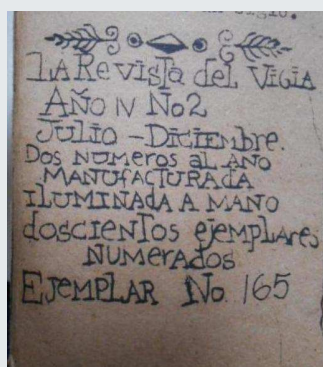 LA Revista del Vigia
AÑO IV No2
JULIO - DICIEMBRE.
DOS NUMEROS AL AÑO
MANUFACTURADA
ILUMINADA A MANO
doscientos ejemplares
NUMERADOS
EJEMPLAR No. 165